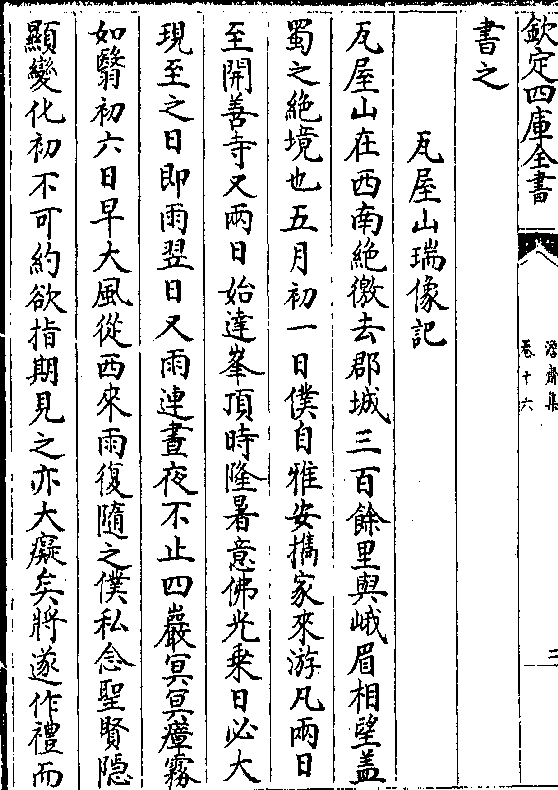 欽定四庫全書
澹齋集
卷十六
三
書之
瓦屋山瑞像記
瓦屋山在西南絶徼去郡城三百餘里與峨眉相望盖
蜀之絶境也五月初一日僕自雅安攜家來游凡兩日
至開善寺又兩日始達峯頂時隆暑意佛光乗日必大
現至之日即雨翌日又雨連晝夜不止四巖冥冥瘴霧
如翳初六日早大風從西來雨復隨之僕私念聖賢隠
顯變化初不可約欲指期見之亦大癡矣將遂作禮而